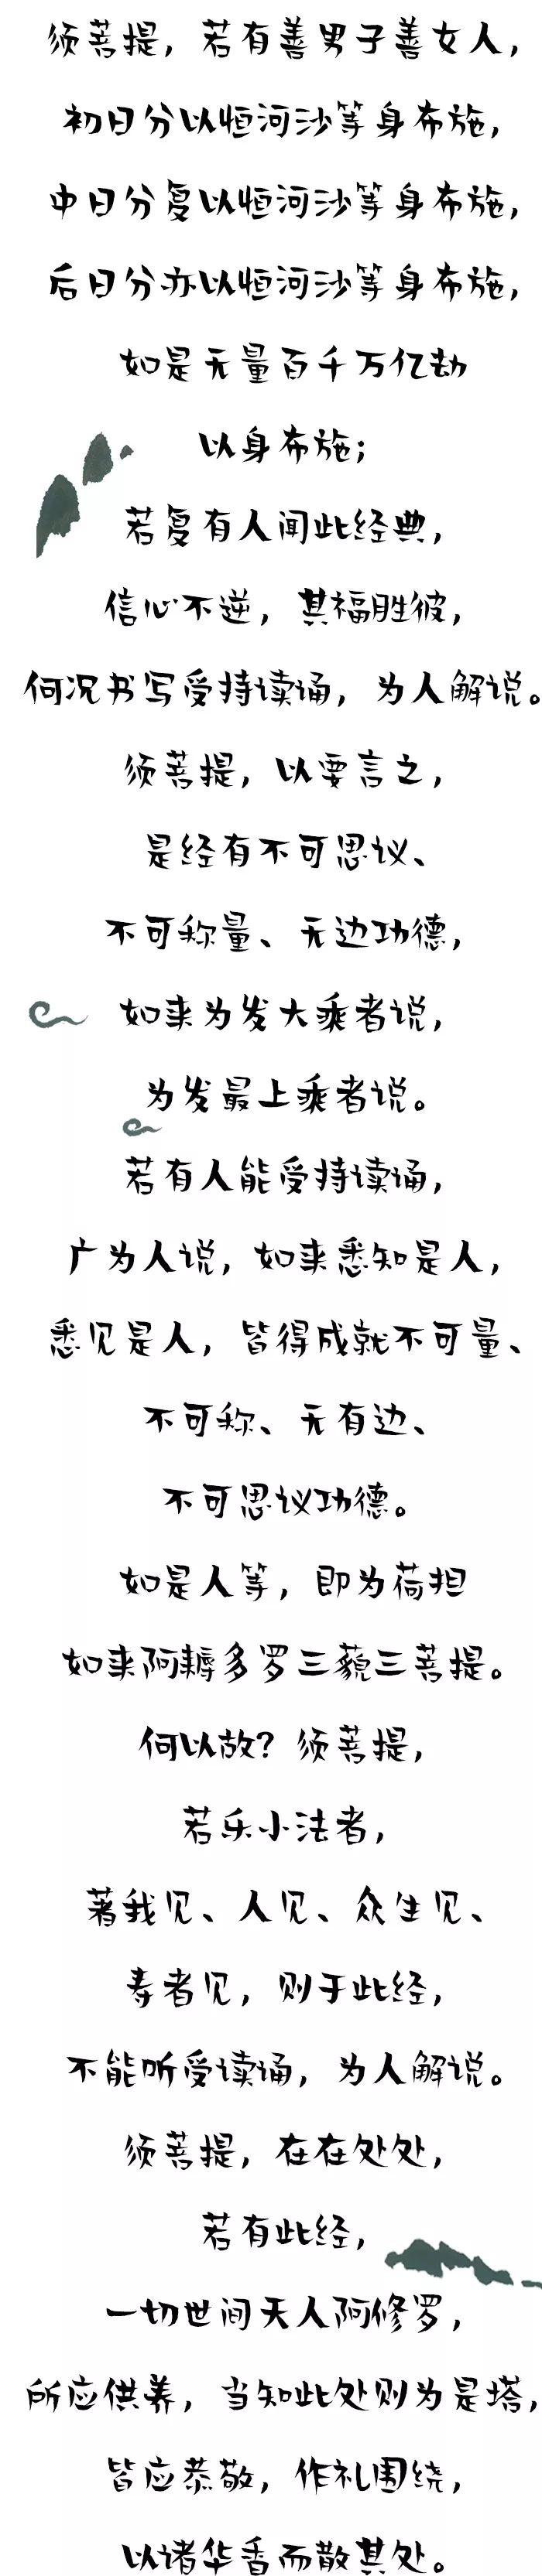 须菩提，若有善男子善女人，
初日分以恒河沙等身布施，
中日分复以恒河沙等身布施，
后日分亦以恒河沙等身布施，
如是无量百千万亿劫
以身布施；
若复有人闻此经典，
信心不逆，其福胜彼，
何况书写受持读诵，为人解说。
须菩提，以要言之，
是经有不可思议、
不可称量、无边功德，
如来为发大乘者说，
为发最上乘者说。
若有人能受持读诵，
广为人说，如来悉知是人，
悉见是人，皆得成就不可量、
不可称、无有边、
不可思议功德。
如是人等，即为荷担
如来阿耨多罗三藐三菩提。
何以故？须菩提，
若乐小法者，
著我见、人见、众生见、
寿者见，则于此经，
不能听受读诵，为人解说。
须菩提，在在处处，
若有此经，
一切世间天人阿修罗，
所应供养，当知此处则为是塔，
皆应恭敬，作礼围绕，
以诸华香而散其处。